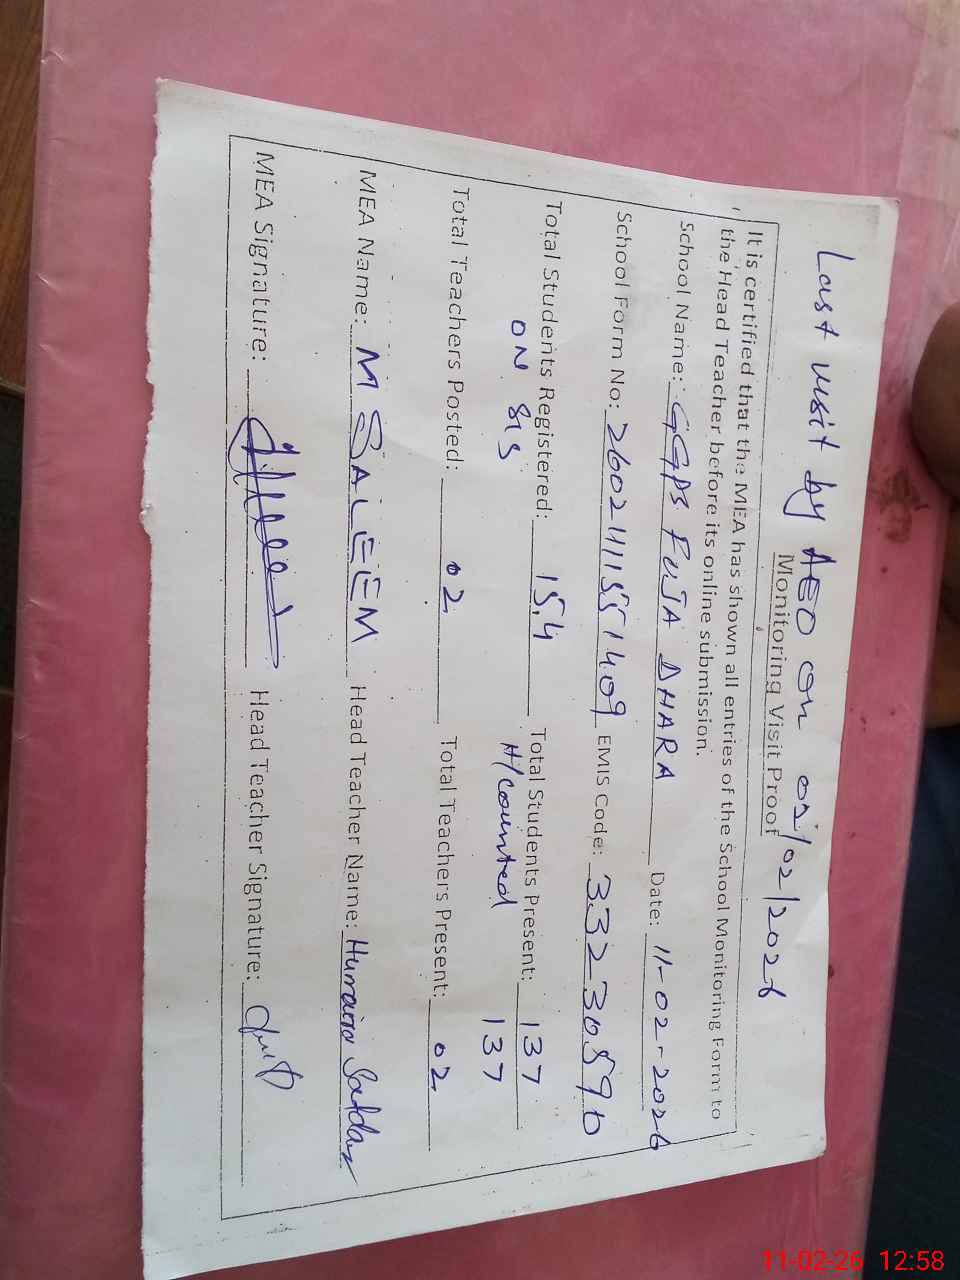 Last visit by AEO on 02/02/2026
Monitoring Visit Proof
It is certified that the MEA has shown all entries of the School Monitoring Form to
the Head Teacher before its online submission.
School Name: GGPS PUJA DHARA Date: 11-02-2026
School Form No: EMIS Code:
Total Students Registered: 154 Total Students Present: 137
ON SIS H/Counted 137
Total Teachers Posted: 02 Total Teachers Present: 02
MEA Name: M SALEEM Head Teacher Name: Humaira Safdar
MEA Signature: Head Teacher Signature:
11-02-26 12:58